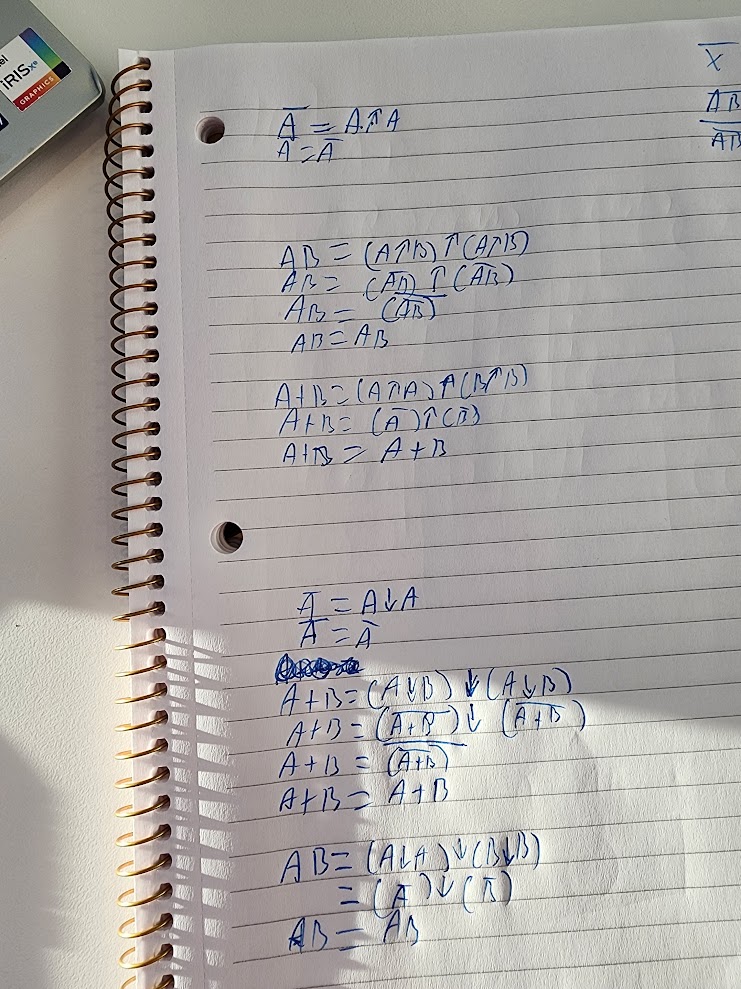 iRISxe
GRAPHICS
X̅
A̅ = A↑A
A̅ = A̅
AB
A̅B̅
AB = (A↑B)↑(A↑B)
AB = (A̅B̅)↑(A̅B̅)
AB = (A̅B̅)̅
AB = AB
A+B = (A↑A)↑(B↑B)
A+B = (A̅)↑(B̅)
A+B = A+B
A̅ = A↓A
A̅ = A̅
A+B = (A↓B)↓(A↓B)
A+B = (A̅+̅B̅)↓(A̅+̅B̅)
A+B = (A̅+̅B̅)̅
A+B = A+B
AB = (A↓A)↓(B↓B)
= (A̅)↓(B̅)
AB = AB